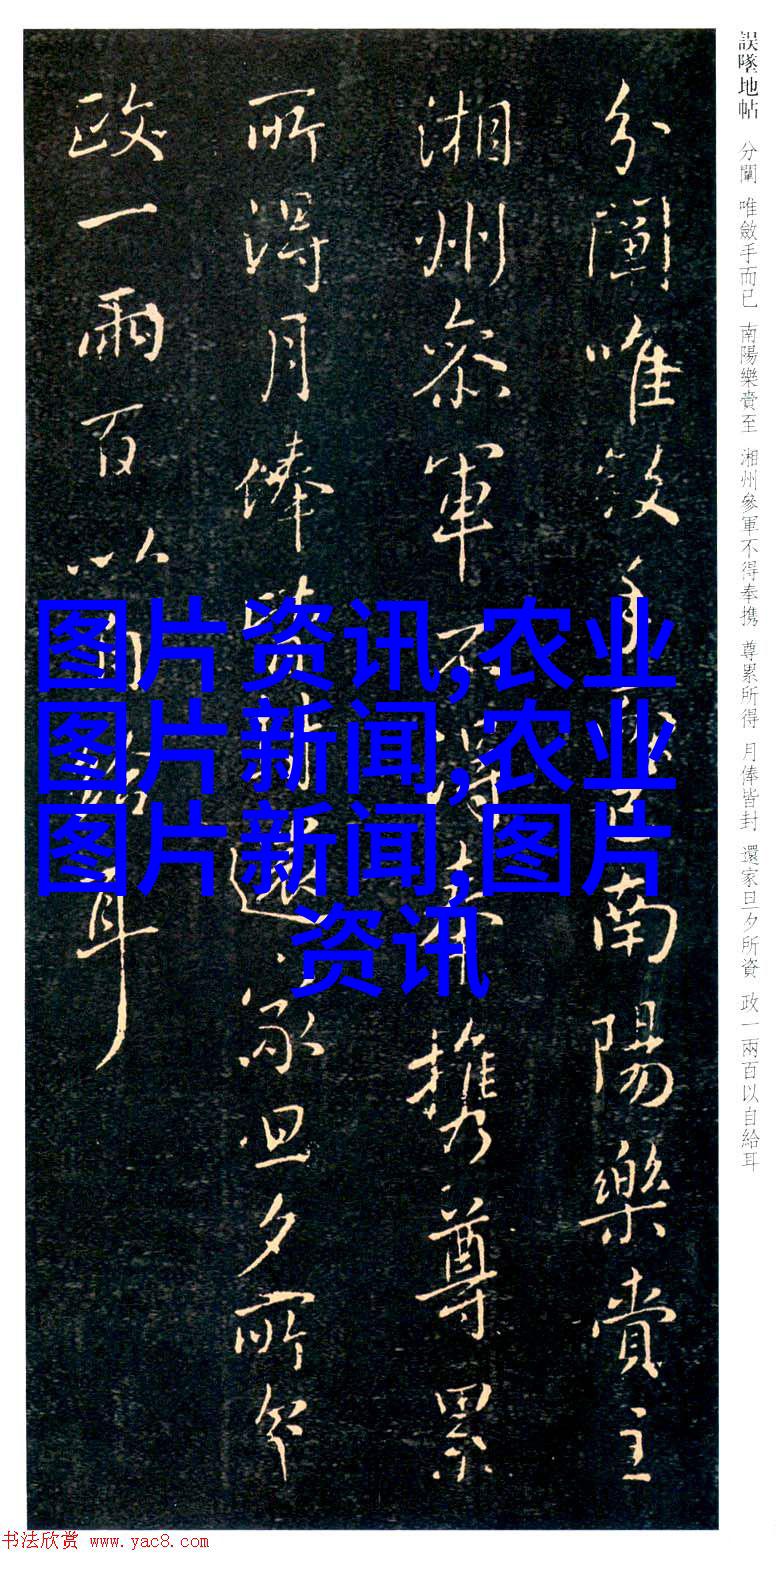 誤墜地帖 分闡 唯斂手而已 南陽樂賞至 湘州參軍不得奉携 尊累所得 月俸皆封 還家旦夕所資 政一兩百以自給耳
分闡唯斂手而已南陽樂賞至
湘州參軍不得奉携尊累
所得月俸皆封還家旦夕所資
政一兩百以自給耳
图片资讯,农业
图片新闻,农业
图片新闻,图片
资讯
书法欣赏 www.yac8.com